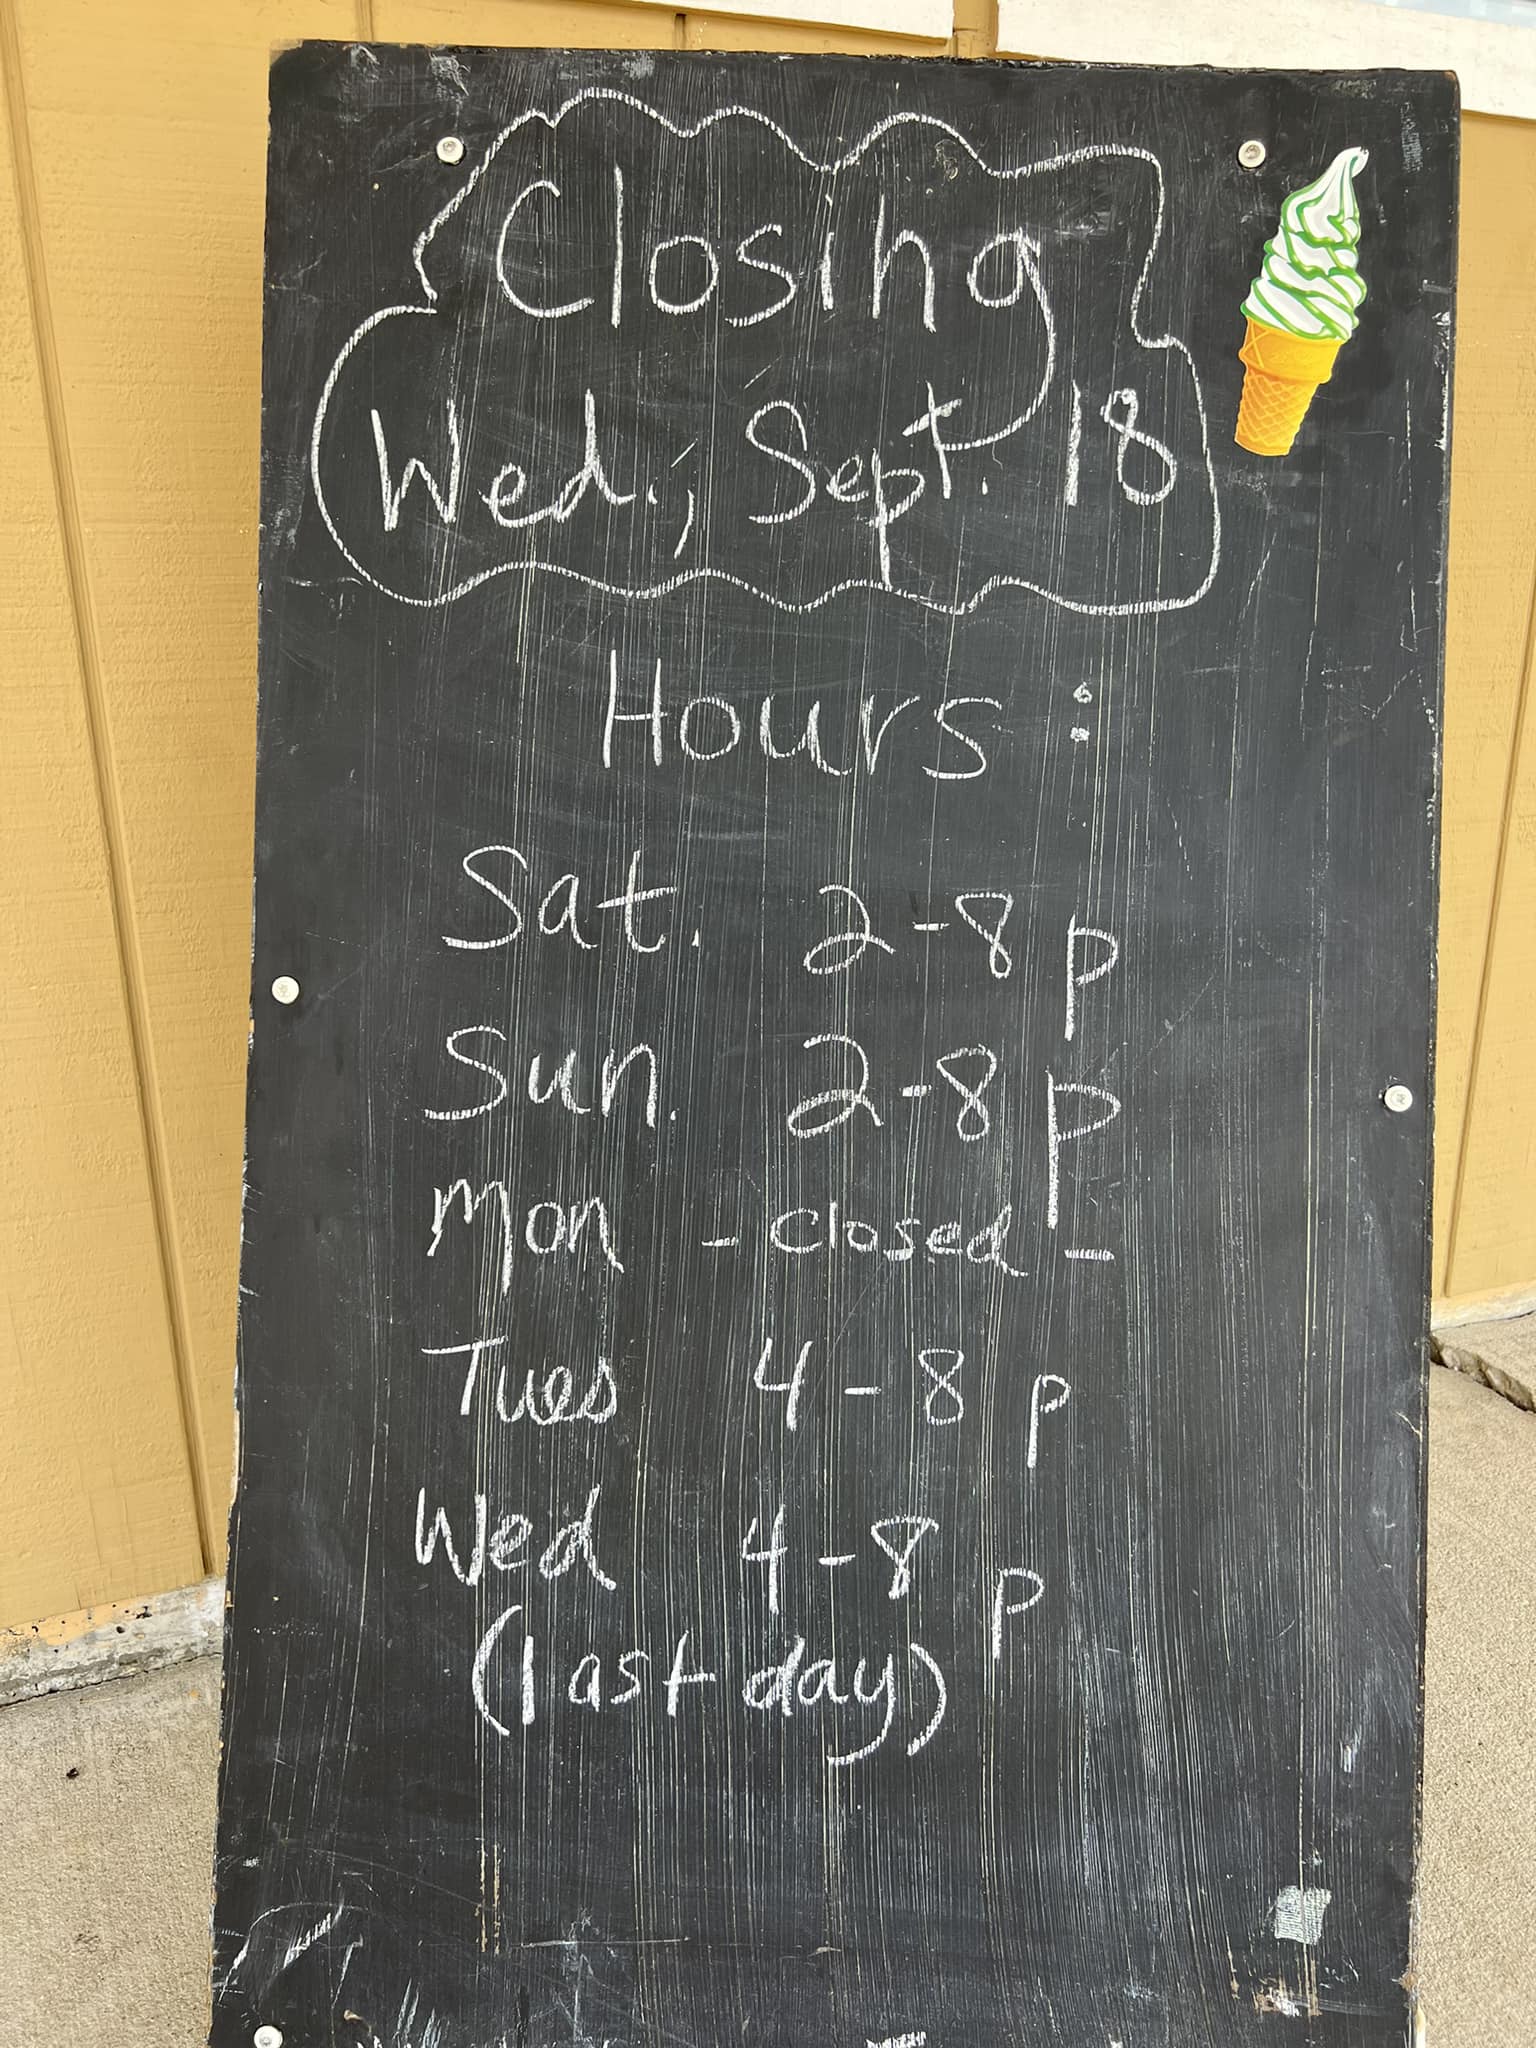 Closing
Wed., Sept. 18
Hours:
Sat. 2-8 p
Sun. 2-8 p
Mon - closed -
Tues 4-8 p
Wed 4-8 p
(last day)